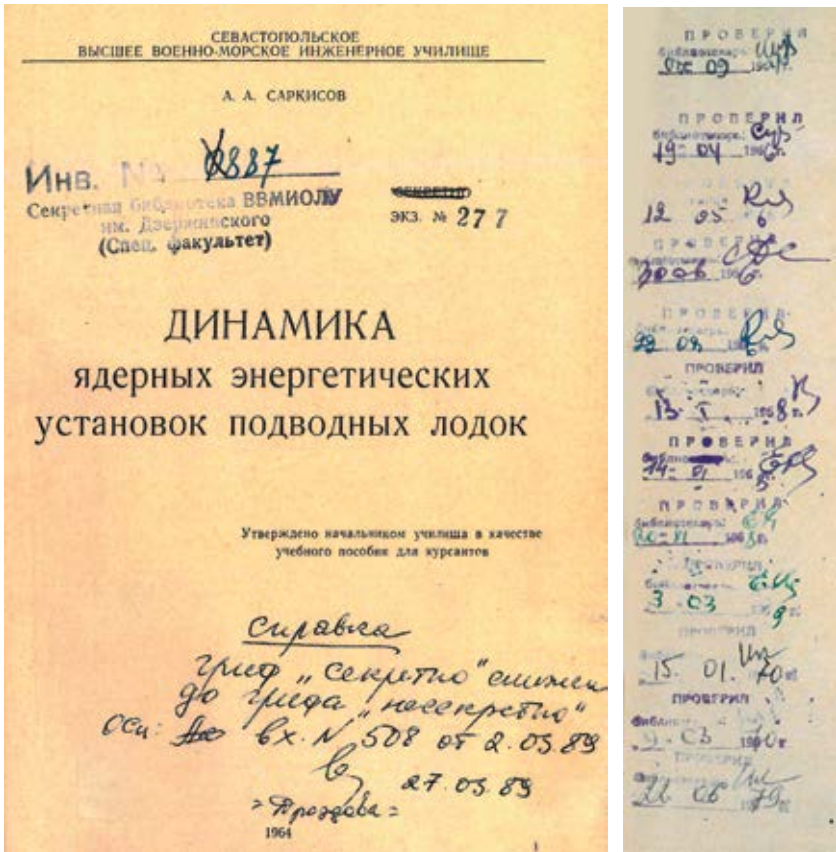 СЕВАСТОПОЛЬСКОЕ
ВЫСШЕЕ ВОЕННО-МОРСКОЕ ИНЖЕНЕРНОЕ УЧИЛИЩЕ
А. А. САРКИСОВ
Инв. № 0887
Секретная библиотека ВВМИОЛУ
им. Дзержинского
(Спец. факультет)
СЕКРЕТНО
ЭКЗ. № 277
ДИНАМИКА
ядерных энергетических
установок подводных лодок
Утверждено начальником училища в качестве
учебного пособия для курсантов
Справка
гриф „Секретно" снижен
до грифа „несекретно"
Осн: вх. № 508 от 2.03.89
27.03.89
=Гроздова=
1964
ПРОВЕРИЛ
библиотекарь:
09 196
ПРОВЕРИЛ
библиотекарь:
19 04 1966г.
12 05 6
ПРОВЕРИЛ
196
ПРОВЕРИЛ
ПРОВЕРИЛ
13 I 1968г.
ПРОВЕРИЛ
14 196
ПРОВЕРИЛ
библиотекарь:
ПРОВЕРИЛ
3 03 9
ПРОВЕРИЛ
15. 01. 70
ПРОВЕРИЛ
03
ПРОВЕРИЛ
22 06